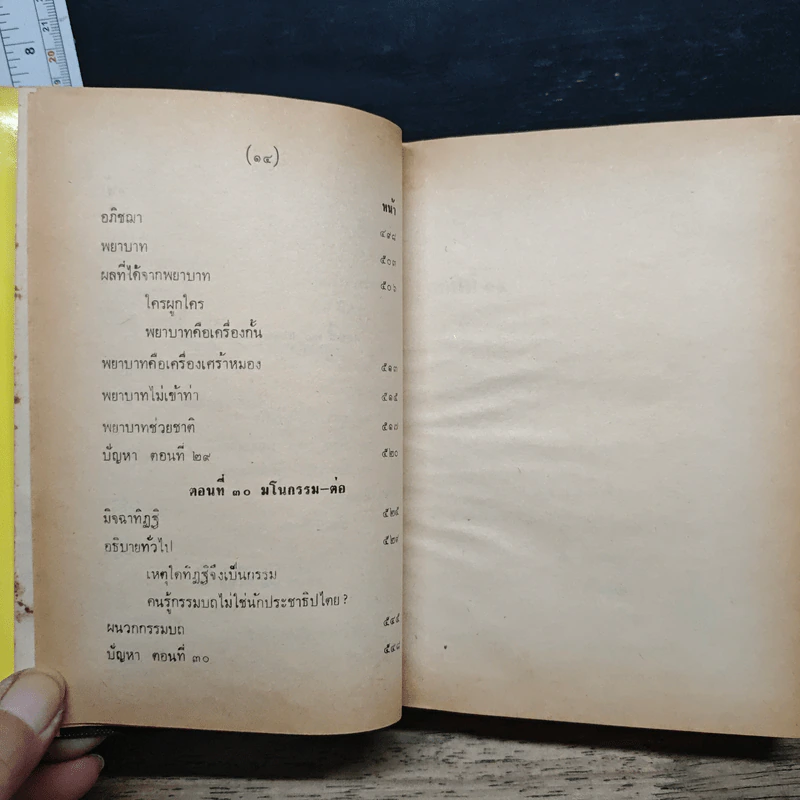 8
21
20
19
(๑๔)
หน้า
อภิชฌา ๔๙๘
พยาบาท ๕๐๓
ผลที่ได้จากพยาบาท ๕๐๖
ใครผูกใคร
พยาบาทคือเครื่องกั้น
พยาบาทคือเครื่องเศร้าหมอง ๕๑๓
พยาบาทไม่เข้าท่า ๕๑๕
พยาบาทช่วยชาติ ๕๑๘
ปัญหา ตอนที่ ๒๙ ๕๒๐
ตอนที่ ๓๐ มโนกรรม–ต่อ
มิจฉาทิฏฐิ
อธิบายทั่วไป ๕๒๙
เหตุใดทิฏฐิจึงเป็นกรรม
คนรู้กรรมบถไม่ใช่นักประชาธิปไตย?
ผนวกกรรมบถ ๕๔๕
ปัญหา ตอนที่ ๓๐ ๕๔๘